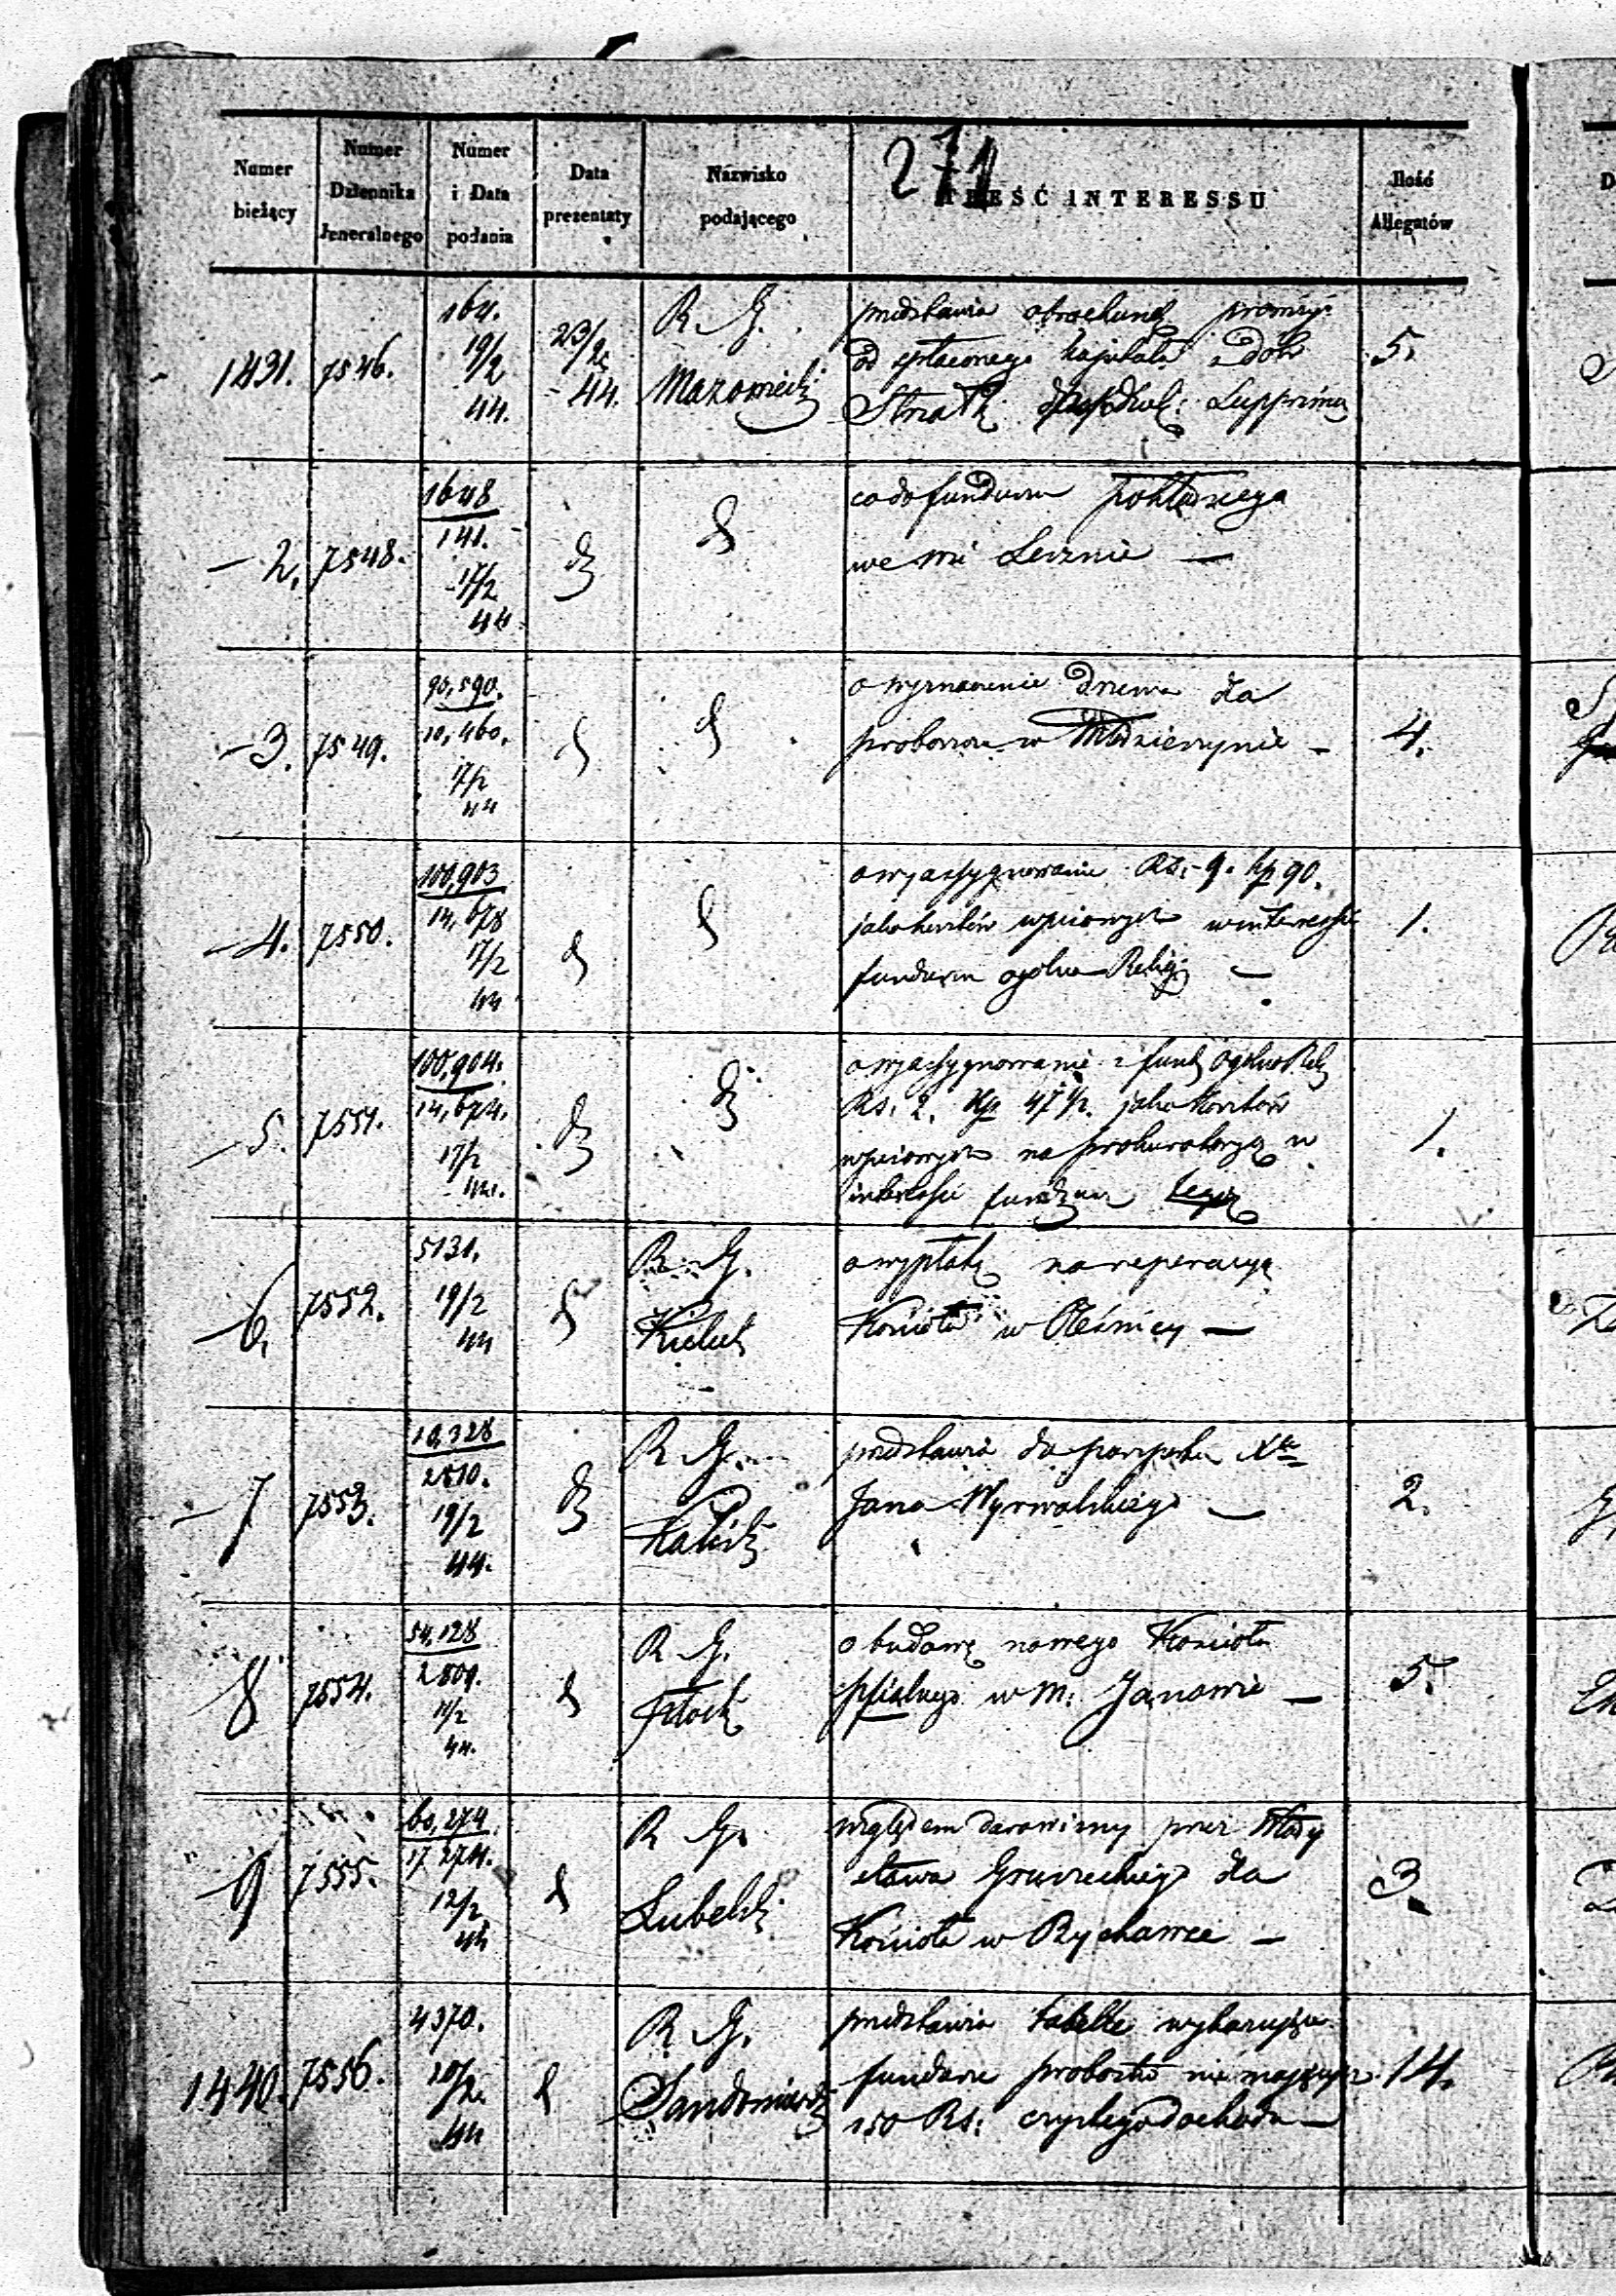 271
Numer bieżący
Numer Dziennika Jeneralnego
Numer i Data podania
Data prezentaty
Nazwisko podającego
TREŚĆ INTERESSU
Ilość Allegatów
1431.
7546.
164.
19/2
44.
23/2
44.
R. G.
Mazowiecki
przedstawia obrachunek
od spłaconego kapitału z dóbr
5.
2.
7548.
1648
141.
17/2
44.
co do funduszu pokładnego
we wsi
3.
7549.
90,590.
10,460.
17/2
44
o wyznaczenie drzewa dla
proboszcza w Młodzieszynie
4.
4.
7550.
100,903
14,678
17/2
44
o wyassygnowanie Rs. 9. kp 90.
jako kosztów w interessie
funduszu ogólno Relig:
1.
5.
7551.
100,904.
14,674.
17/2
44.
o wyassygnowanie z fund. ogólno Relig
Rs. 2. kp 47 1/2. jako kosztów
na prokuratoryą w
interessie funduszu
1.
6.
7552.
5131.
19/2
44
R. G.
Kielec
o wypłatę na reperacyą
Kościoła w Oleśnicy
7
7553.
10,328
2510.
19/2
44.
R. G.
Kalisk
przedstawia do paszportu Xdza
Jana
2.
8
7554.
54,128
2809.
11/2
44.
R. G.
Płock
o budowę nowego Kościoła
pfialnego w m: Janowie
5.
9
7555.
60,274
17 274.
12/2
44
R. G.
Lubelski
względem darowizny przez Włady
sława dla
Kościoła w Bychawce
3.
1440.
7556.
4370.
10/2
44
R. G.
Sandomierski
przedstawia tabelle wykazujące
fundusze probostw nie mających
150 Rs: czystego dochodu
14.